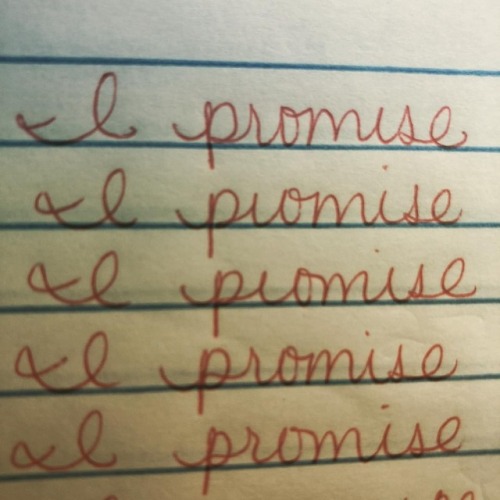 I promise
I promise
I promise
I promise
I promise